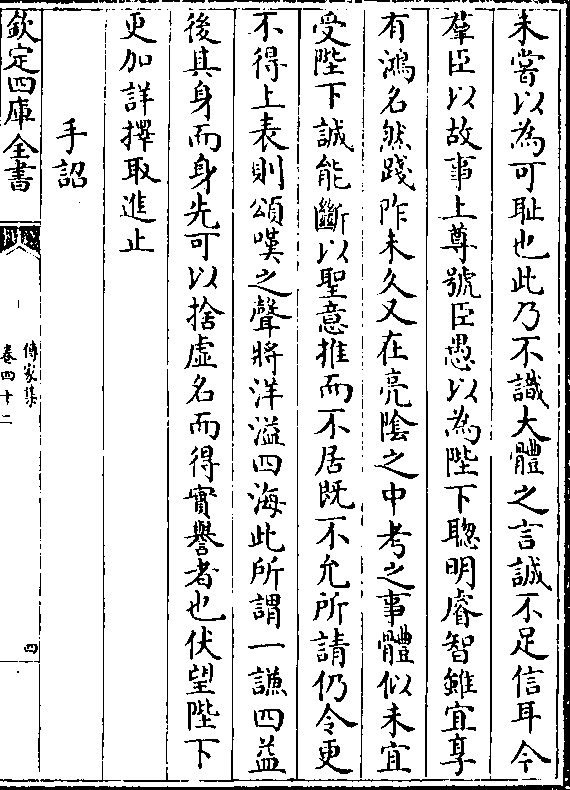 未嘗以為可耻也此乃不識大體之言誠不足信耳今
羣臣以故事上尊號臣愚以為陛下聰明睿智雖宜享
有鴻名然踐阼未久又在亮隂之中考之事體似未宜
受陛下誠能斷以聖意推而不居既不允所請仍令更
不得上表則頌嘆之聲將洋溢四海此所謂一謙四益
後其身而身先可以捨虛名而得實譽者也伏望陛下
更加詳擇取進止
手詔
欽定四庫全書
傳家集
卷四十二
四